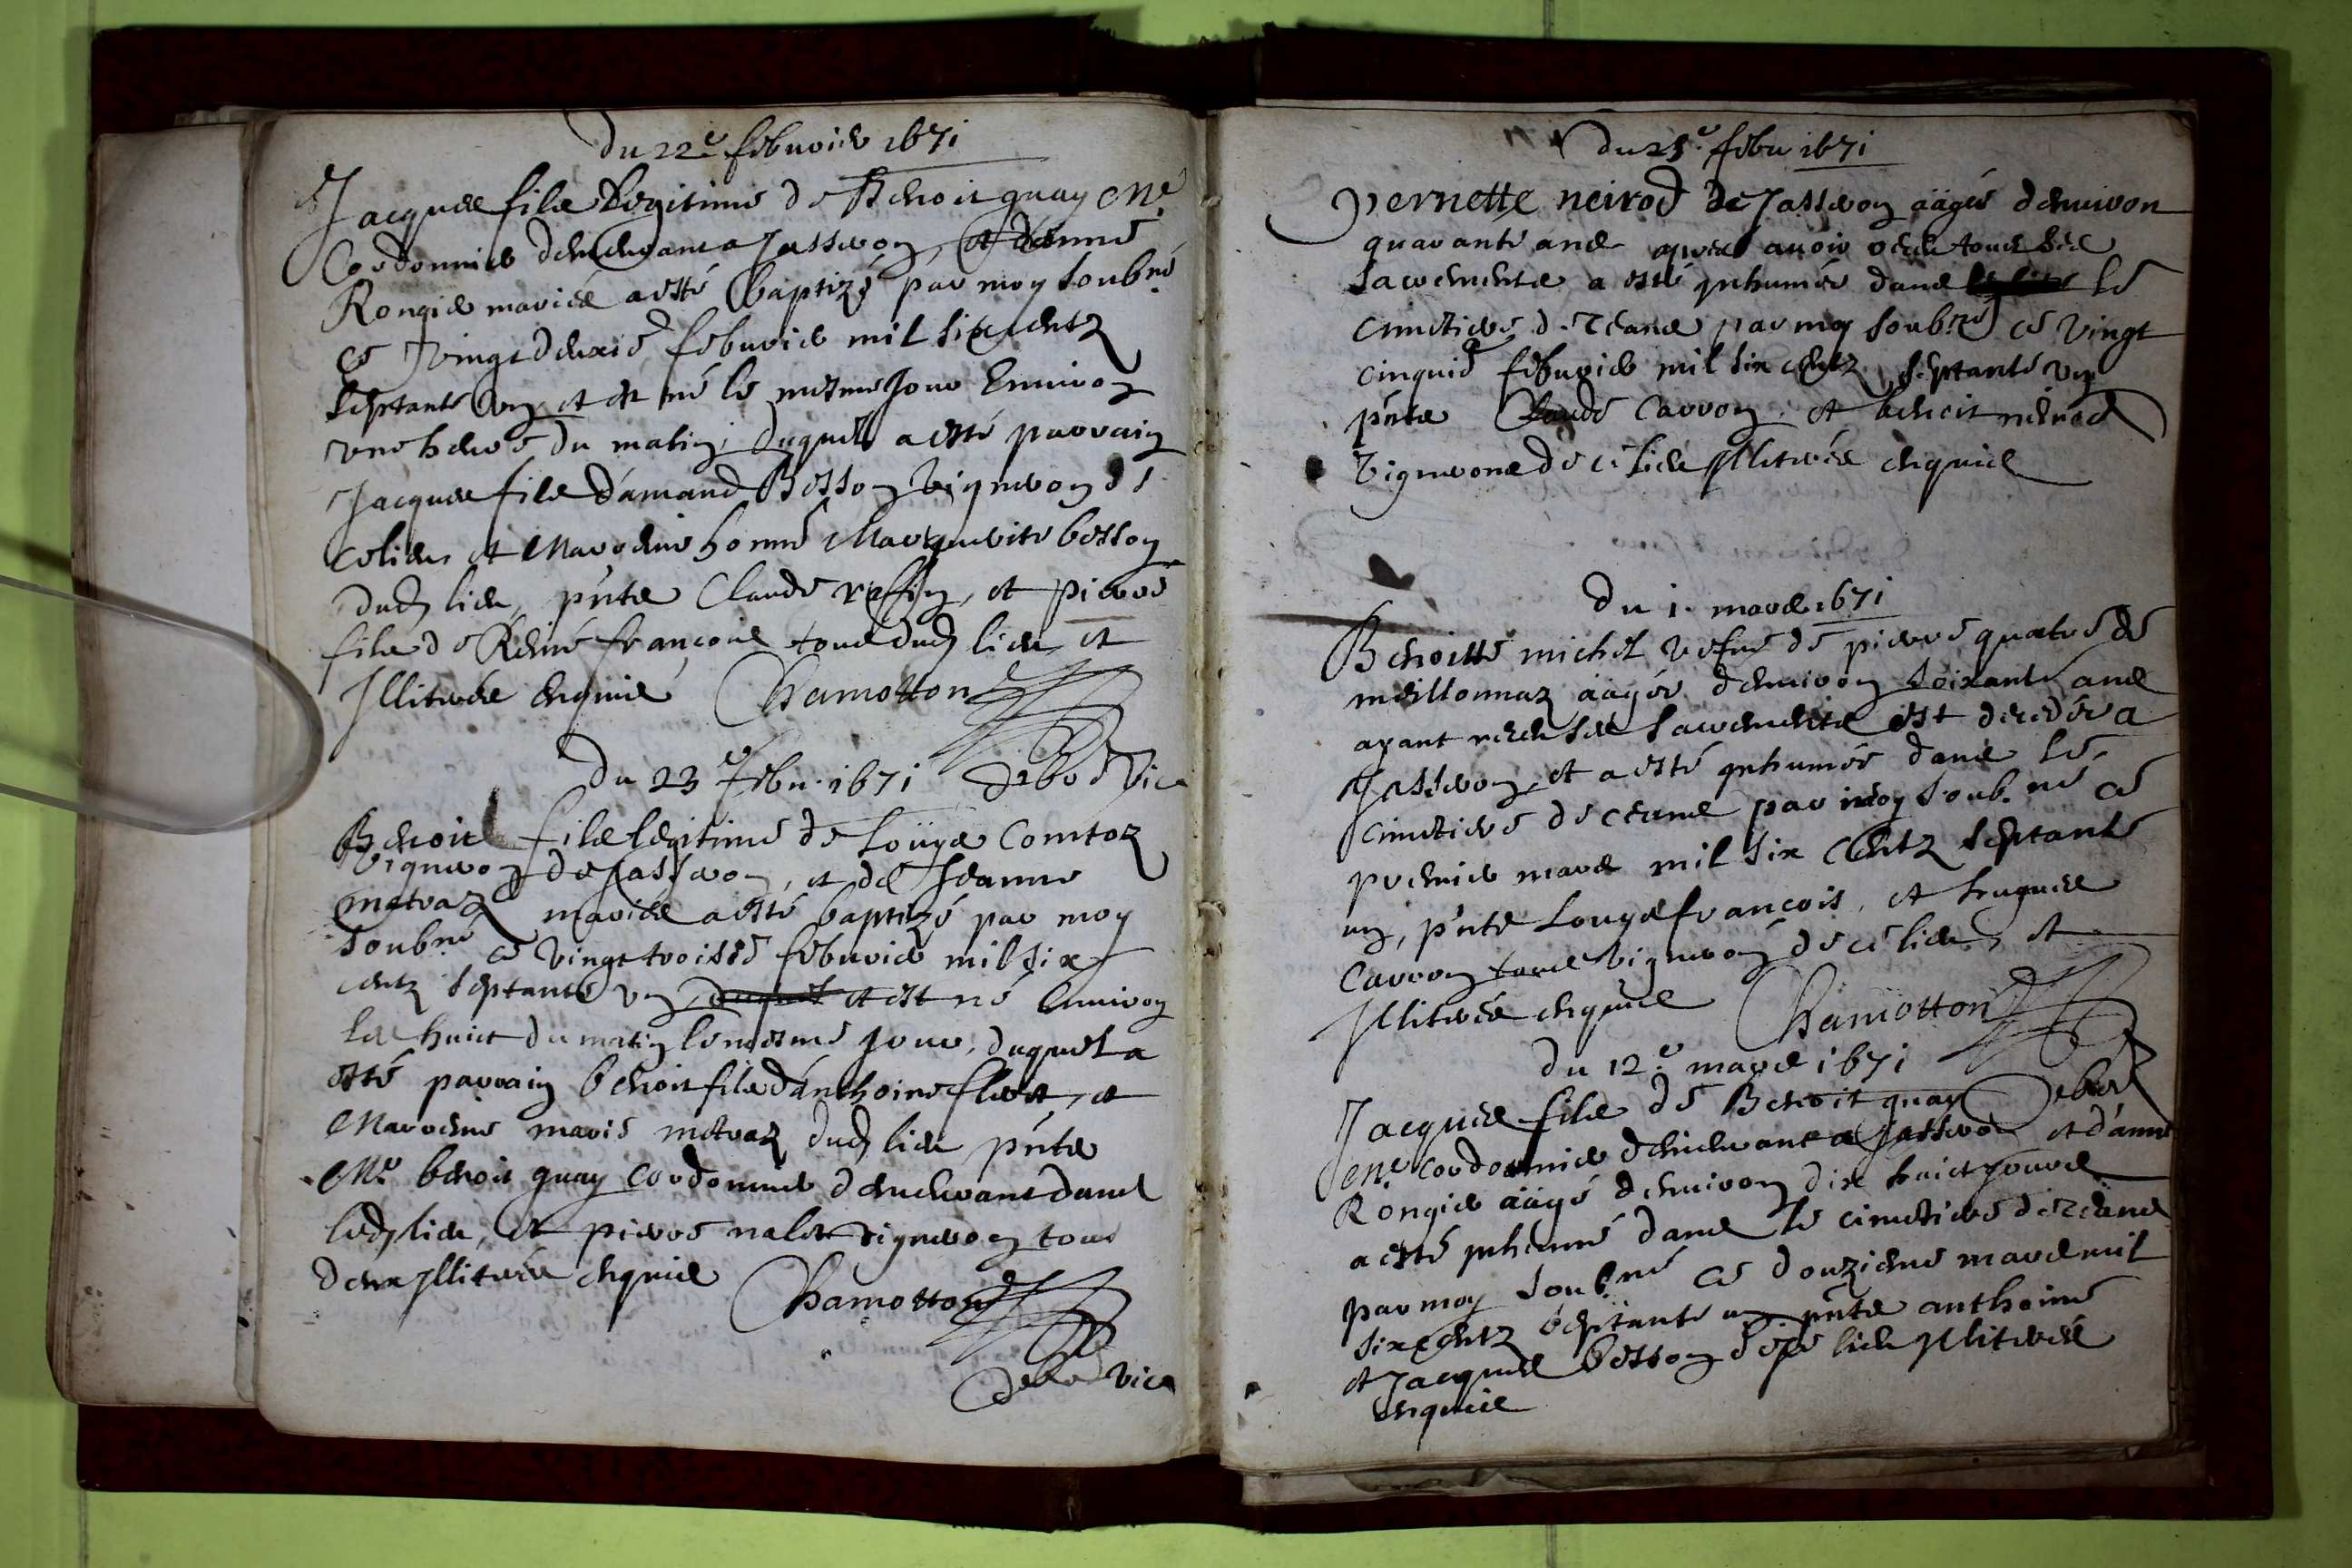 du 22.e febvrier 1671
Jacques fils legitime de Benoit quay Me.
Cordonnier demeurant a Jasseron, et d'anne
Rongier mariés a esté baptizé par moy soub.né
ce vingt deuxie febvrier mil six centz
septante un et est né le mesme jour environ
une heure du matin, duquel a esté parrain
Jacques fils d'amand Besson vigneron de
ce lieu, et Marreine honne Marguerite besson
dud lieu, pnts Claude, et pierre
fils de René françois tous dud lieu, et
Illitérés enquis Chamotton
Du 23.e febv. 1671 Vic
Benoit fils legitime de Loüys Comtoz
vigneron de Jasseron, et de Jeanne
metraz mariés a esté baptizé par moy
soub.né ce vingt troisie febvrier mil six
centz septante un duquel et est né environ
les huict du matin le mesme jour, duquel a
esté parrain benoit fils d'anthoine, et
Marreine marie metraz dud lieu pnts
Me. benoit quay Cordonnier demeurant dans
led lieu, et pierre vigneron tous
deux Illitérés enquis Chamotton
Vic
Du 25.e febv 1671
pernette neirod de Jasseron aagée d'environ
quarante ans apres avoir receu tous les
sacrements a esté inhumée dans le
cimetiere de ceans par moy soub.né ce vingt
cinquie febvrier mil six centz septante un
pnts Claude Carron, et benoit neirod
vignerons de ce lieu Illitérés enquis
Du 1. mars 1671
Benoitte michel vefve de pierre quatre de
meillonnaz aagée d'environ soixante ans
ayant receu ses sacrements est decedée a
Jasseron, et a esté inhumée dans le
cimetiere de ceans par moy soub.né ce
premier mars mil six centz septante
un, pnts Louys françois, et hugues
Carron tous vignerons de ce lieu, et
Illitérés enquis Chamotton
du 12.e mars 1671
Jacques fils de Benoit quay
Me. cordonnier demeurant a Jasseron et d'anne
Rongier aagé d'environ dix huict jours
a esté inhumé dans le cimetiere de ceans
par moy soub.né ce douzieme mars mil
six centz septante un pnts anthoine
et Jacques besson de ce lieu Illitérés
enquis